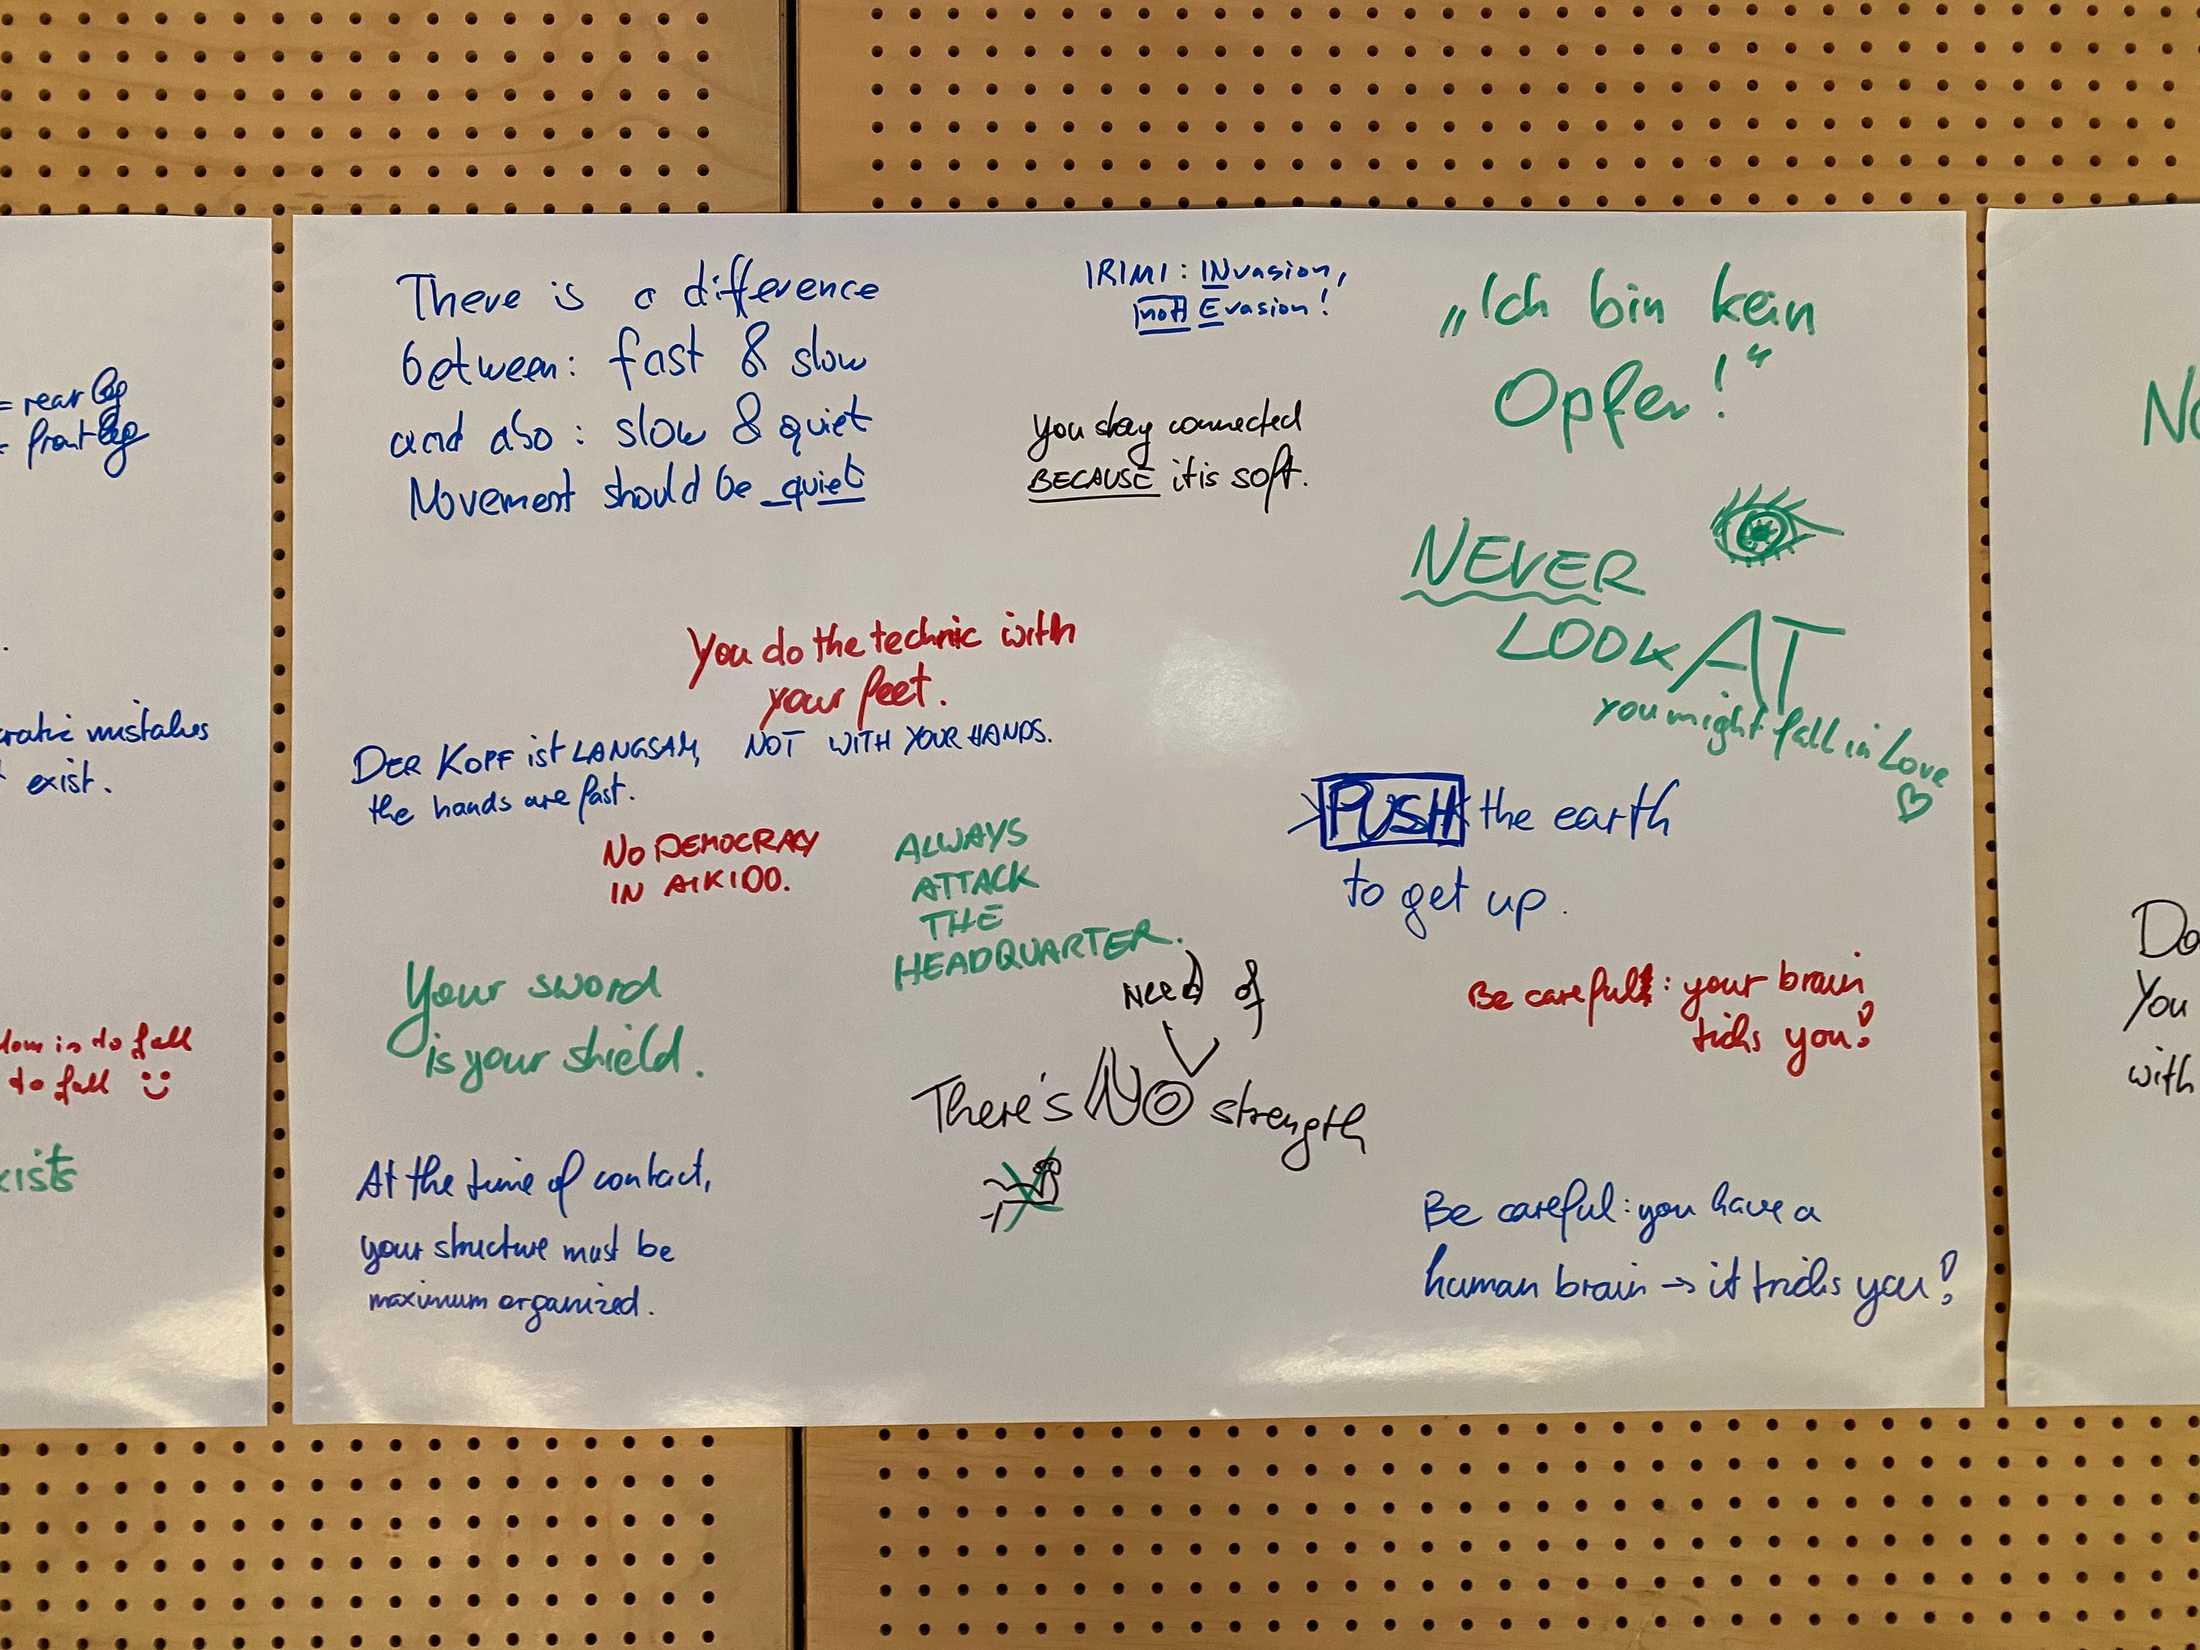 = rear leg
= front leg
mistakes
exist.
is to fall
to fall
There is a difference
between: fast & slow
and also: slow & quiet
Movement should be quiet
IRIMI: INvasion,
not Evasion!
You stay connected
BECAUSE it is soft.
„Ich bin kein
Opfer!“
NEVER
LOOK AT
you might fall in Love
You do the technic with
your feet.
NOT WITH YOUR HANDS.
DER KOPF ist LANGSAM,
the hands are fast.
NO DEMOCRACY
IN AIKIDO.
ALWAYS
ATTACK
THE
HEADQUARTER.
PUSH the earth
to get up.
Your sword
is your shield.
Need of
There's NO strength
Be careful: your brain
tricks you!
At the time of contact,
your structure must be
maximum organized.
Be careful: you have a
human brain → it tricks you!
You
with